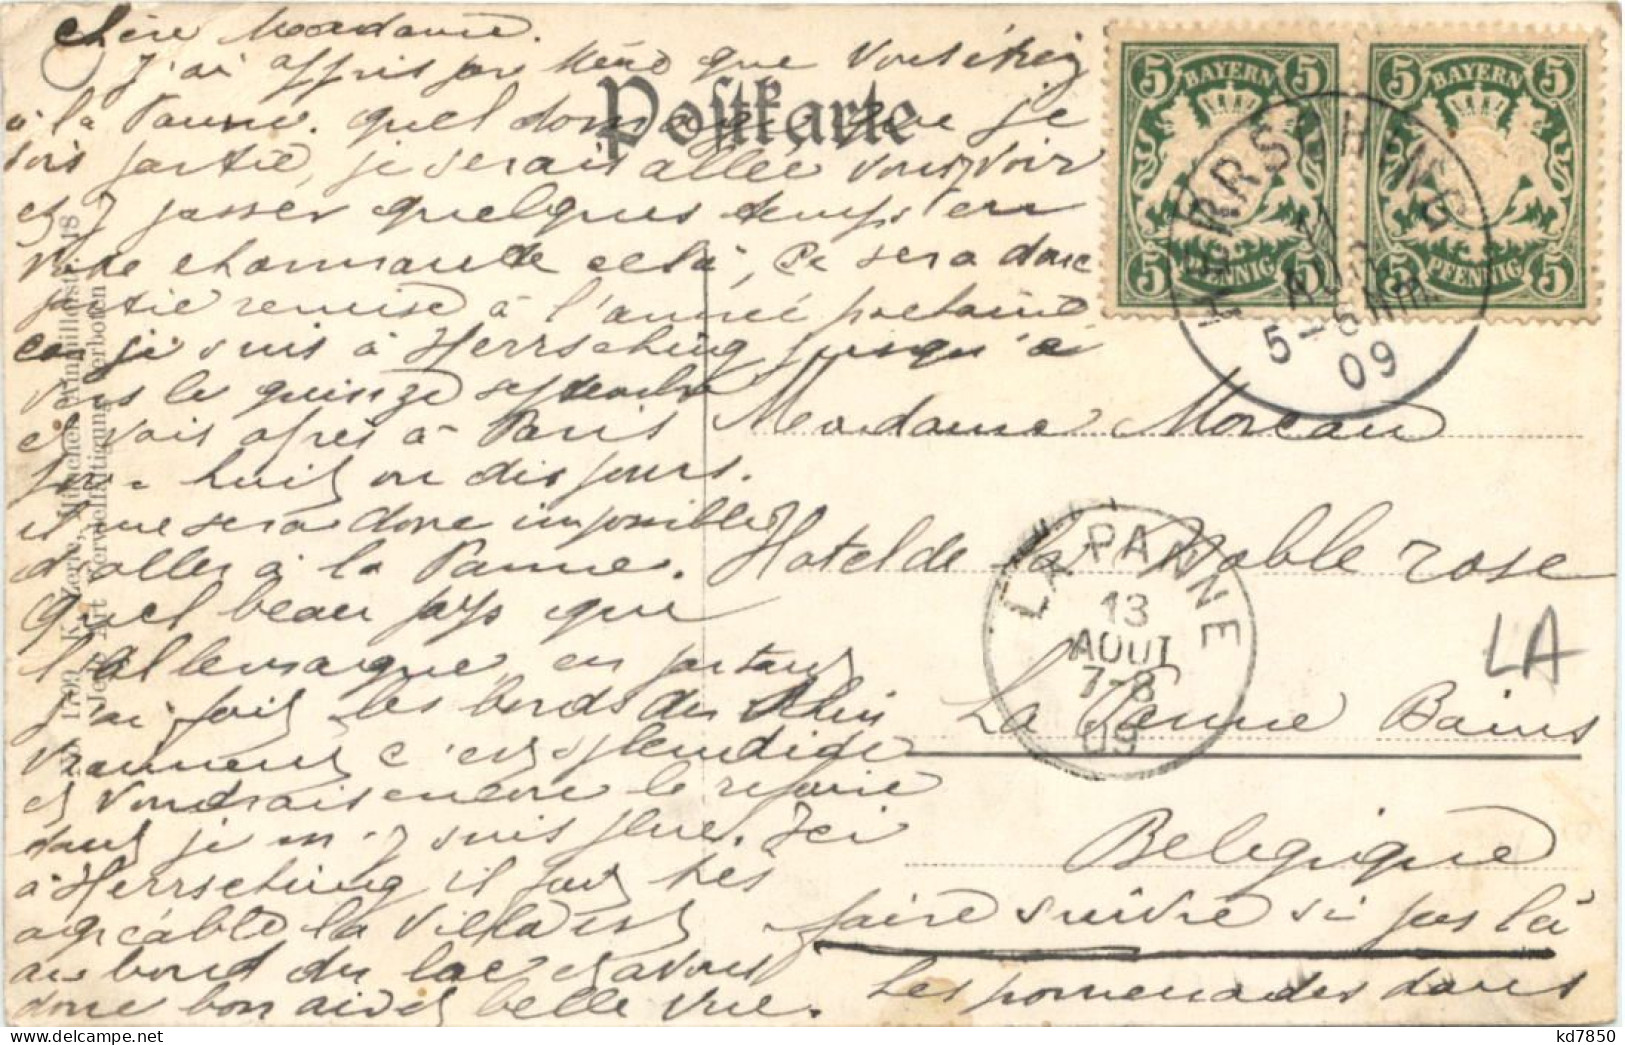 chère Madame.
J'ai appris par que vous étiez
Postkarte
à la Panne. quel dommage que je
sois partie, je serais allée vous voir
et y passer quelques temps en
votre charmante cela, Ce sera donc
partie remise à l'année prochaine
car je suis à Herrsching jusqu'à
vers le quinze septembre
et vais après à Paris
pour huit ou dix jours.
il me sera donc impossible
d'aller à la Panne.
Quel beau pays que
l'allemagne, en partant
j'ai fait les bords du Rhin
vraiment c'est splendide
et voudrais encore le refaire
tant je m'y suis plue. Ici
à Herrsching il fait très
agréable la villa est
au bord du lac et avons
donc bon air et belle vue.
Les promenades dans
5 BAYERN 5
5 PFENNIG 5
5 BAYERN 5
5 PFENNIG 5
HERRSCHING
AUG.
5-6 NM.
09
Madame Moreau
Hotel de la Noble rose
La Panne Bains
Belgique
faire suivre si pas là
LA PANNE
13
AOUT
7-8
09
LA
1799 München
Vervielfältigung verboten
18
kd7850